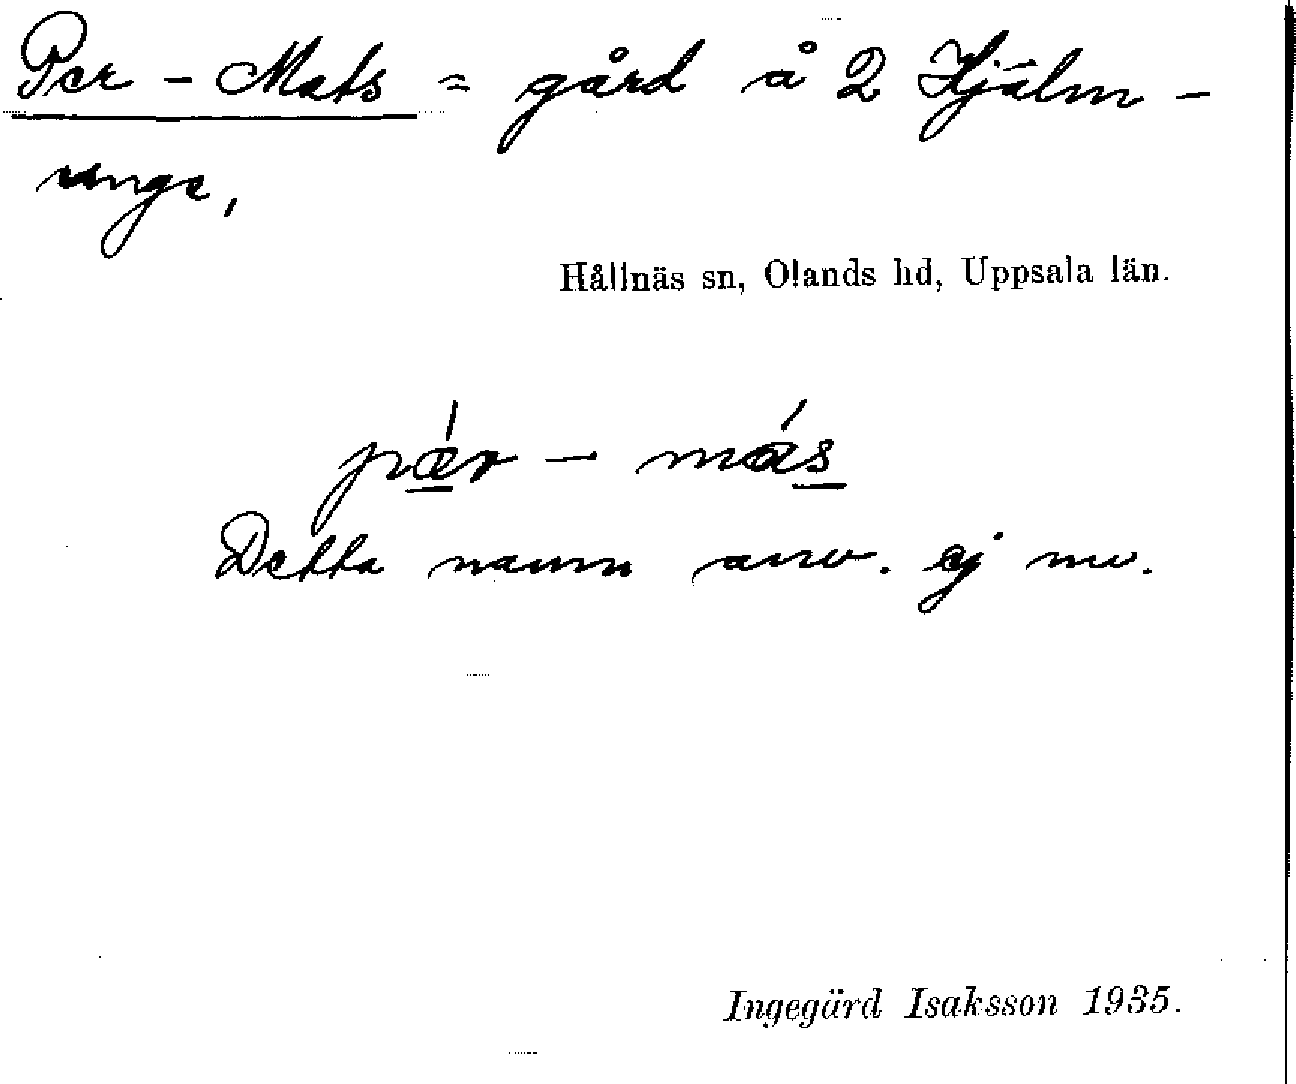 Per-Mats = gård å 2 Hjälm-
unge,
Hållnäs sn, Olands hd, Uppsala län.
pǽr - más
Detta namn anv. ej nu.
Ingegärd Isaksson 1935.